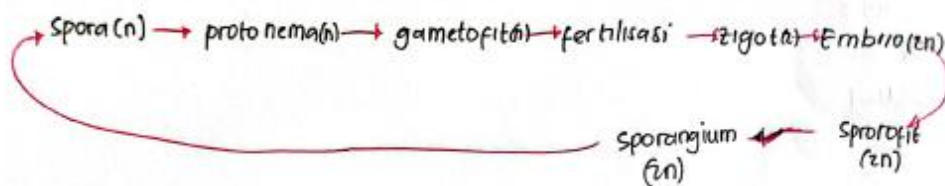 Spora (n) → protonema(n) → gametofit(n) → fertilisasi → zigot(2) → Embrio(2n)
sporangium
(2n)
Sprorofit
(2n)